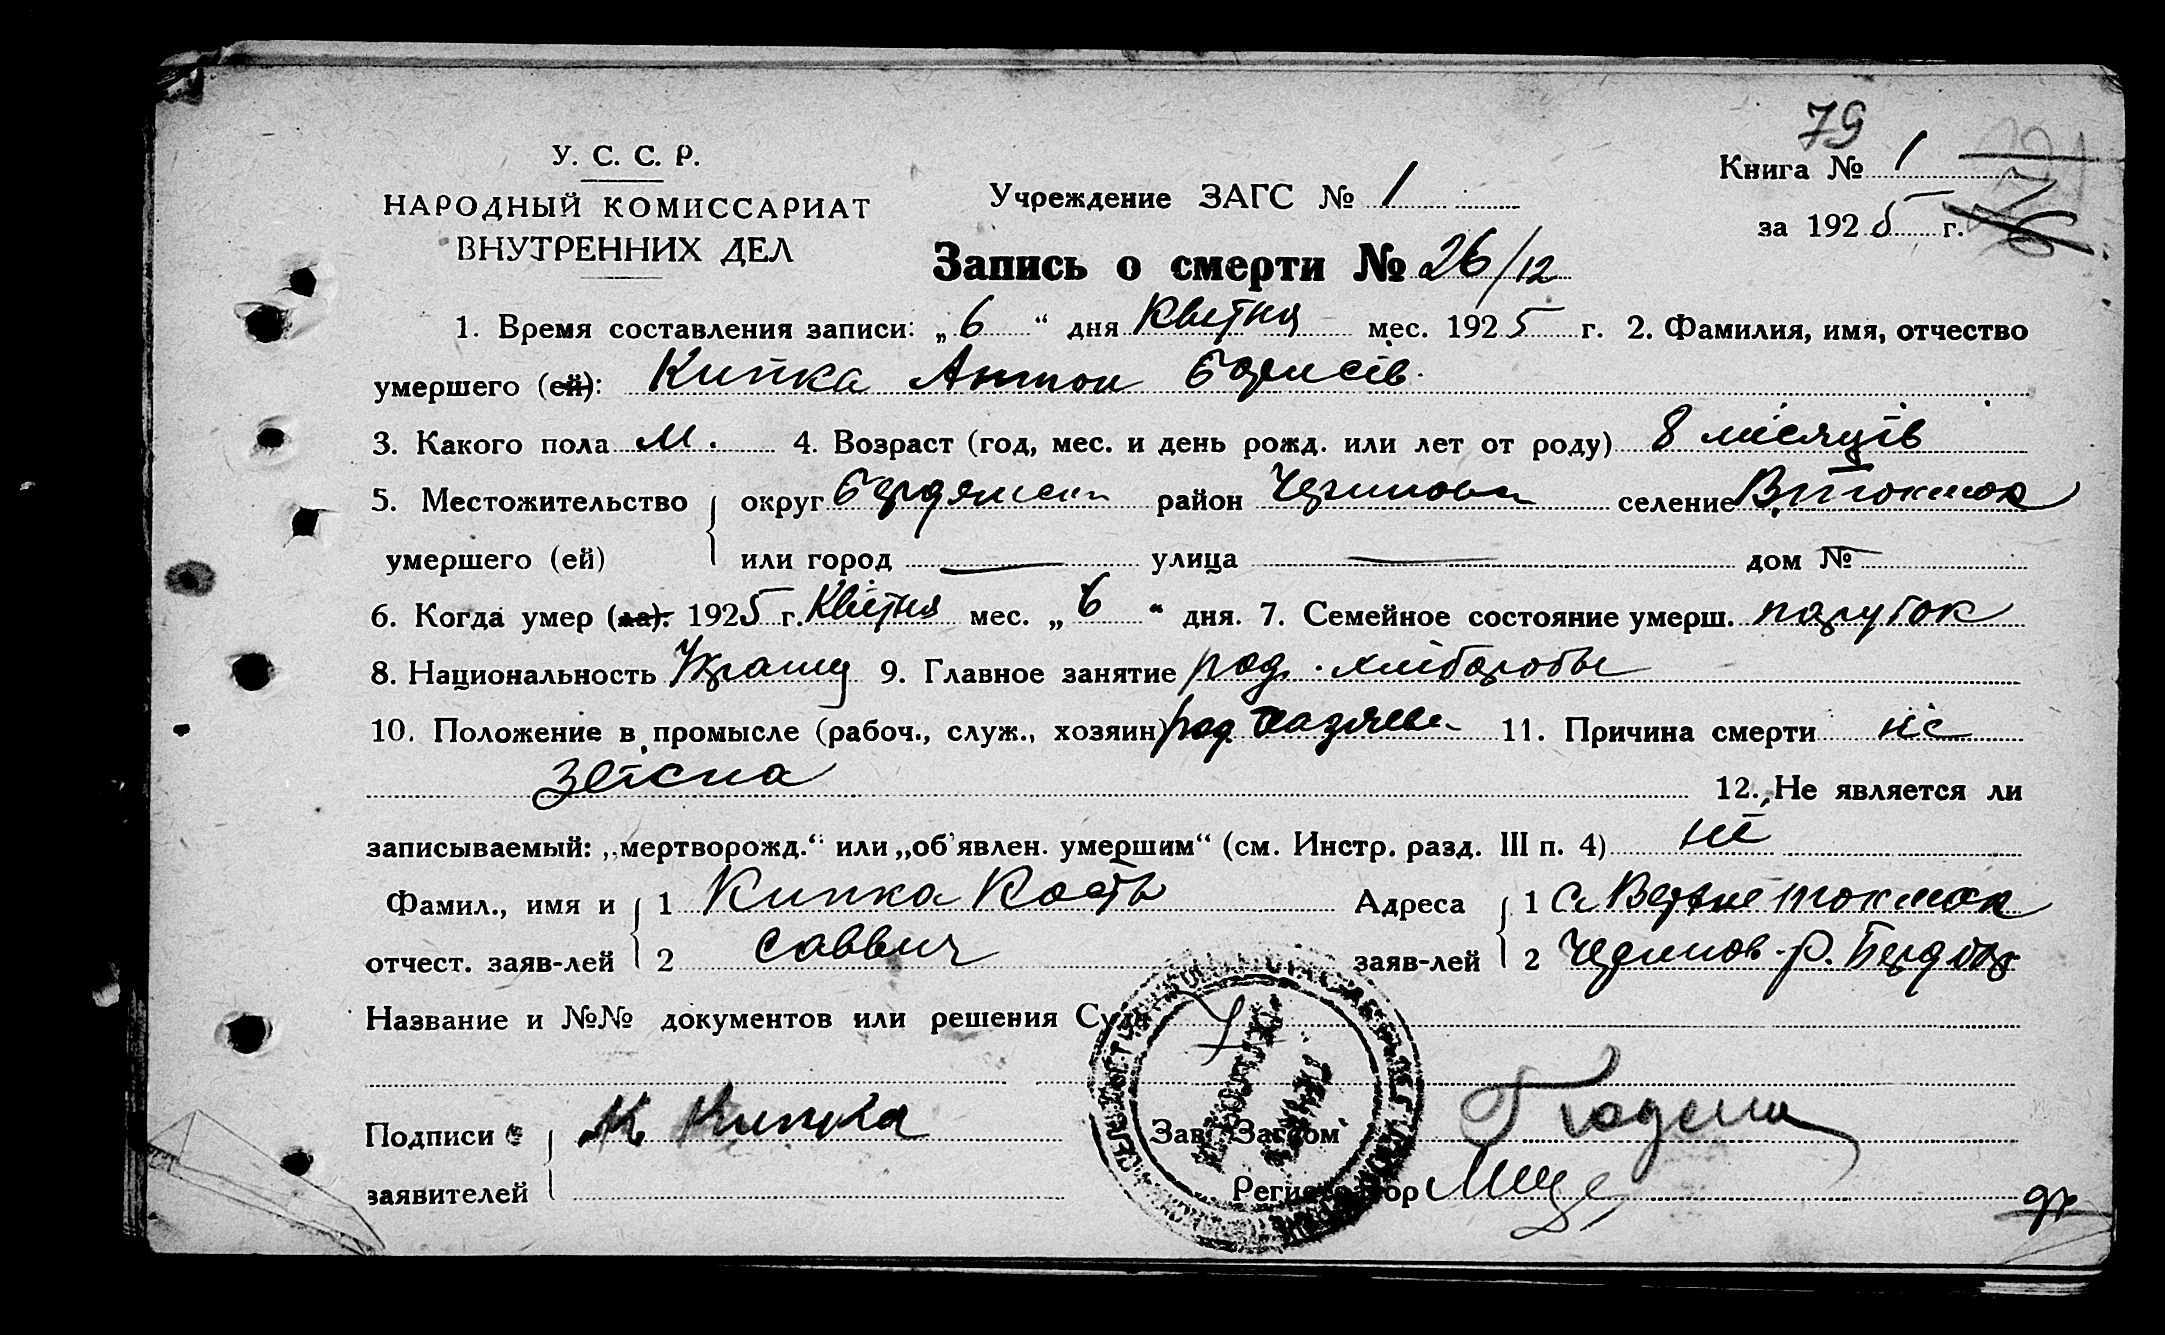 79
У. С. С. Р.
НАРОДНЫЙ КОМИССАРИАТ
ВНУТРЕННИХ ДЕЛ
Учреждение ЗАГС № 1
Книга № 1
за 1925 г.
Запись о смерти № 26/12
1. Время составления записи: „6“ дня Квітня мес. 1925 г. 2. Фамилия, имя, отчество
умершего (ей): Кипка Антон
3. Какого пола м. 4. Возраст (год, мес. и день рожд. или лет от роду) 8 місяців
5. Местожительство округ Бердянськ район селение В. Токмак
умершего (ей) или город — улица — дом № —
6. Когда умер (ла): 1925 г. Квітня мес. „6“ дня. 7. Семейное состояние умерш. парубок
8. Национальность 9. Главное занятие род. хлібороби
10. Положение в промысле (рабоч., служ., хозяин) род. 11. Причина смерти не
звісна
12. Не является ли
записываемый: „мертворожд.“ или „об'явлен. умершим“ (см. Инстр. разд. III п. 4) ні
Фамил., имя и 1 Кипка Кость Адреса 1 С. Верхне Токмак
отчест. заяв-лей 2 Саввич заяв-лей 2
Название и №№ документов или решения Суда
Подписи К Кипка Зав. Загсом
заявителей Регистратор